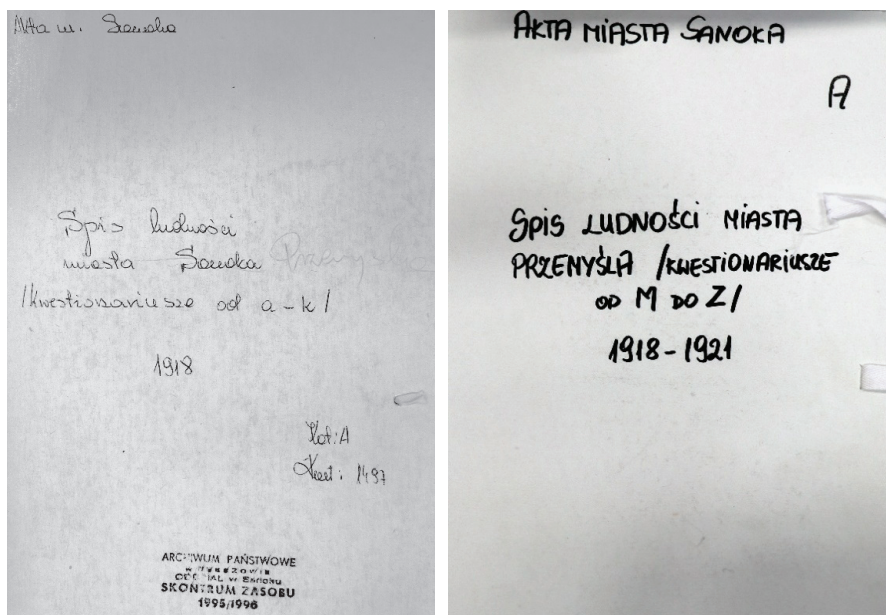 Akta m. Sanoka
Spis ludności
miasta Sanoka Przemyśla
/Kwestionariusze od a-k/
1918
Kat: A
1497
ARCHIWUM PAŃSTWOWE
w Rzeszowie
ODDZIAŁ w Sanoku
SKONTRUM ZASOBU
1995/1996
AKTA MIASTA SANOKA
A
SPIS LUDNOŚCI MIASTA
PRZEMYŚLA /KWESTIONARIUSZE
OD M DO Z/
1918-1921